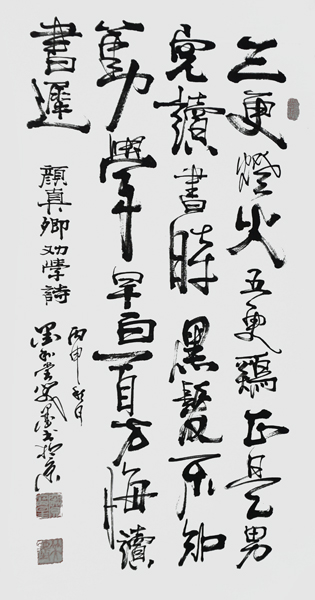 三更燈火五更鷄正是男
兒讀書時黑髮不知
勤學早白首方悔讀
書遲
顏真卿劝學詩
丙申